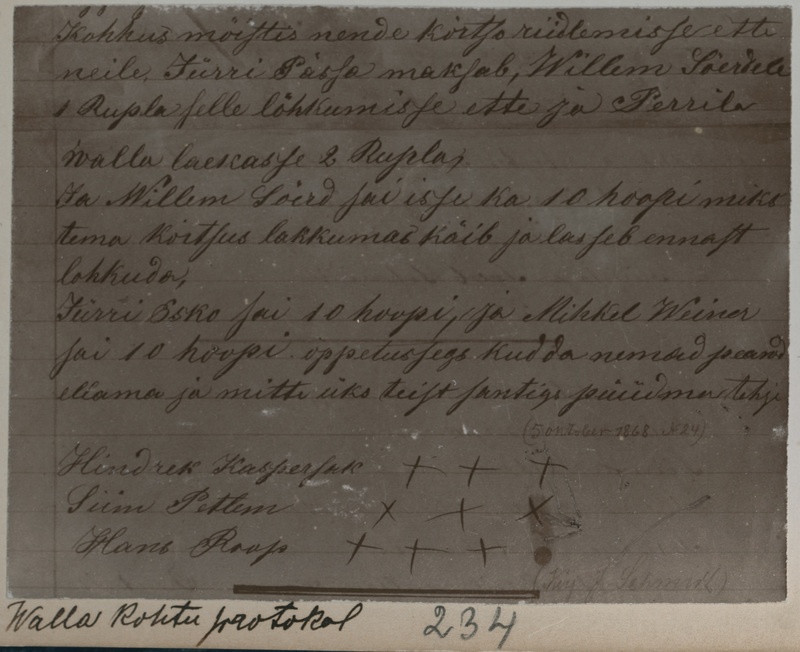 Kohhus mõistis nende kõrtso riidlemisse ette
neile. Jürri Pässa maksab, Willem Söerdele
1 Rupla selle lõhkumisse ette ja Perrila
walla laekasse 2 Rupla,
Ja Willem Söerd sai isse ka 10 hoopi miks
tema kõrtsus lakkumas käib ja lasseb ennast
lohkuda,
Jürri Esko sai 10 hoopi, ja Mihkel Weiner
sai 10 hoopi õppetussegs kudda nemad peawad
ellama ja mitte üks teist santigs püüdma tehja
(5 october 1868 N 24)
Hindrek Kaspersak + + +
Siim Petlem x + x
Hans Roop + + +
(Kirj. J. Schmidt)
Walla kohtu protokol 234